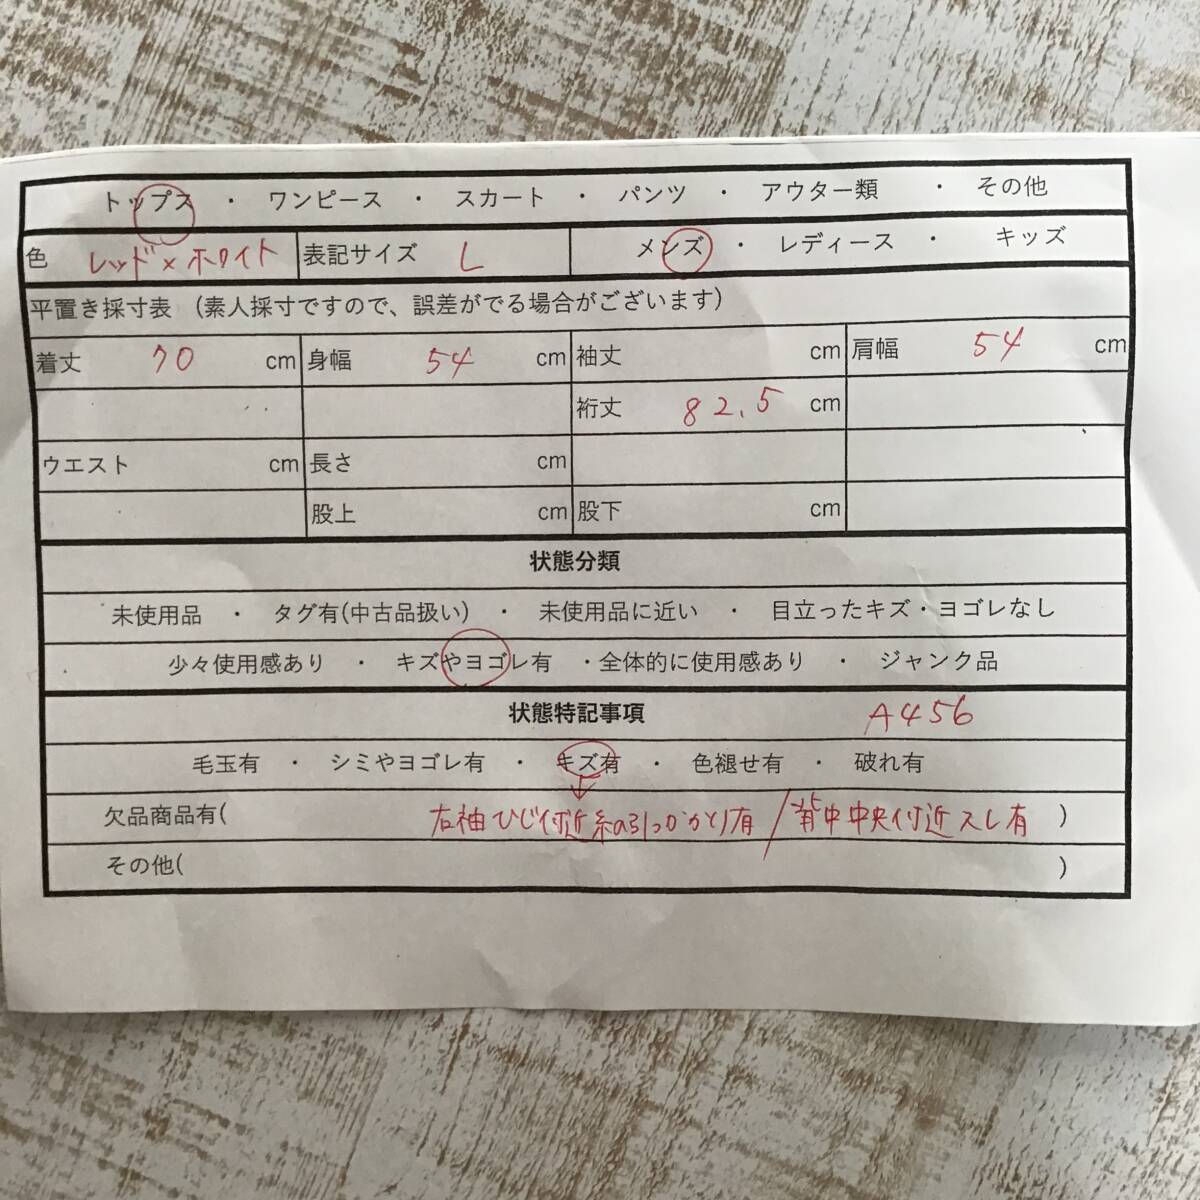 トップス ・ ワンピース ・ スカート ・ パンツ ・ アウター類 ・ その他
色 レッド×ホワイト 表記サイズ L メンズ ・ レディース ・ キッズ
平置き採寸表 (素人採寸ですので、誤差がでる場合がございます)
着丈 70 cm 身幅 54 cm 袖丈 cm 肩幅 54 cm
裄丈 82.5 cm
ウエスト cm 長さ cm
股上 cm 股下 cm
状態分類
未使用品 ・ タグ有(中古品扱い) ・ 未使用品に近い ・ 目立ったキズ・ヨゴレなし
少々使用感あり ・ キズやヨゴレ有 ・全体的に使用感あり ・ ジャンク品
状態特記事項 A456
毛玉有 ・ シミやヨゴレ有 ・ キズ有 ・ 色褪せ有 ・ 破れ有
欠品商品有( 右袖ひじ付近糸の引っかかり有/背中中央付近スレ有 )
その他( )